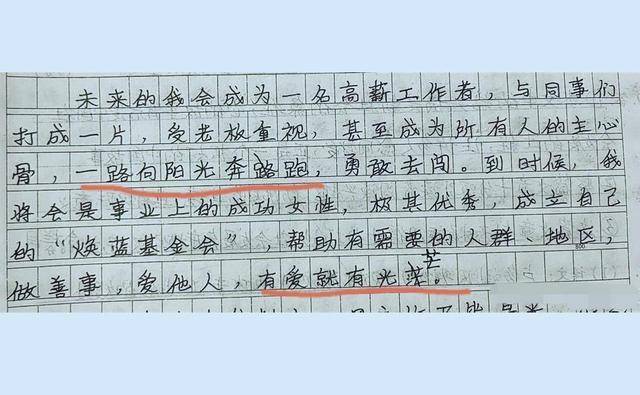 未来的我会成为一名高薪工作者，与同事们
打成一片，受老板重视，甚至成为所有人的主心
骨，一路向阳光奔跑，勇敢去闯。到时候，我
将会是事业上的成功女性，极其优秀，成立自己
的“焕蓝基金会”，帮助有需要的人群、地区，
做善事，爱他人，有爱就有光芒。
800